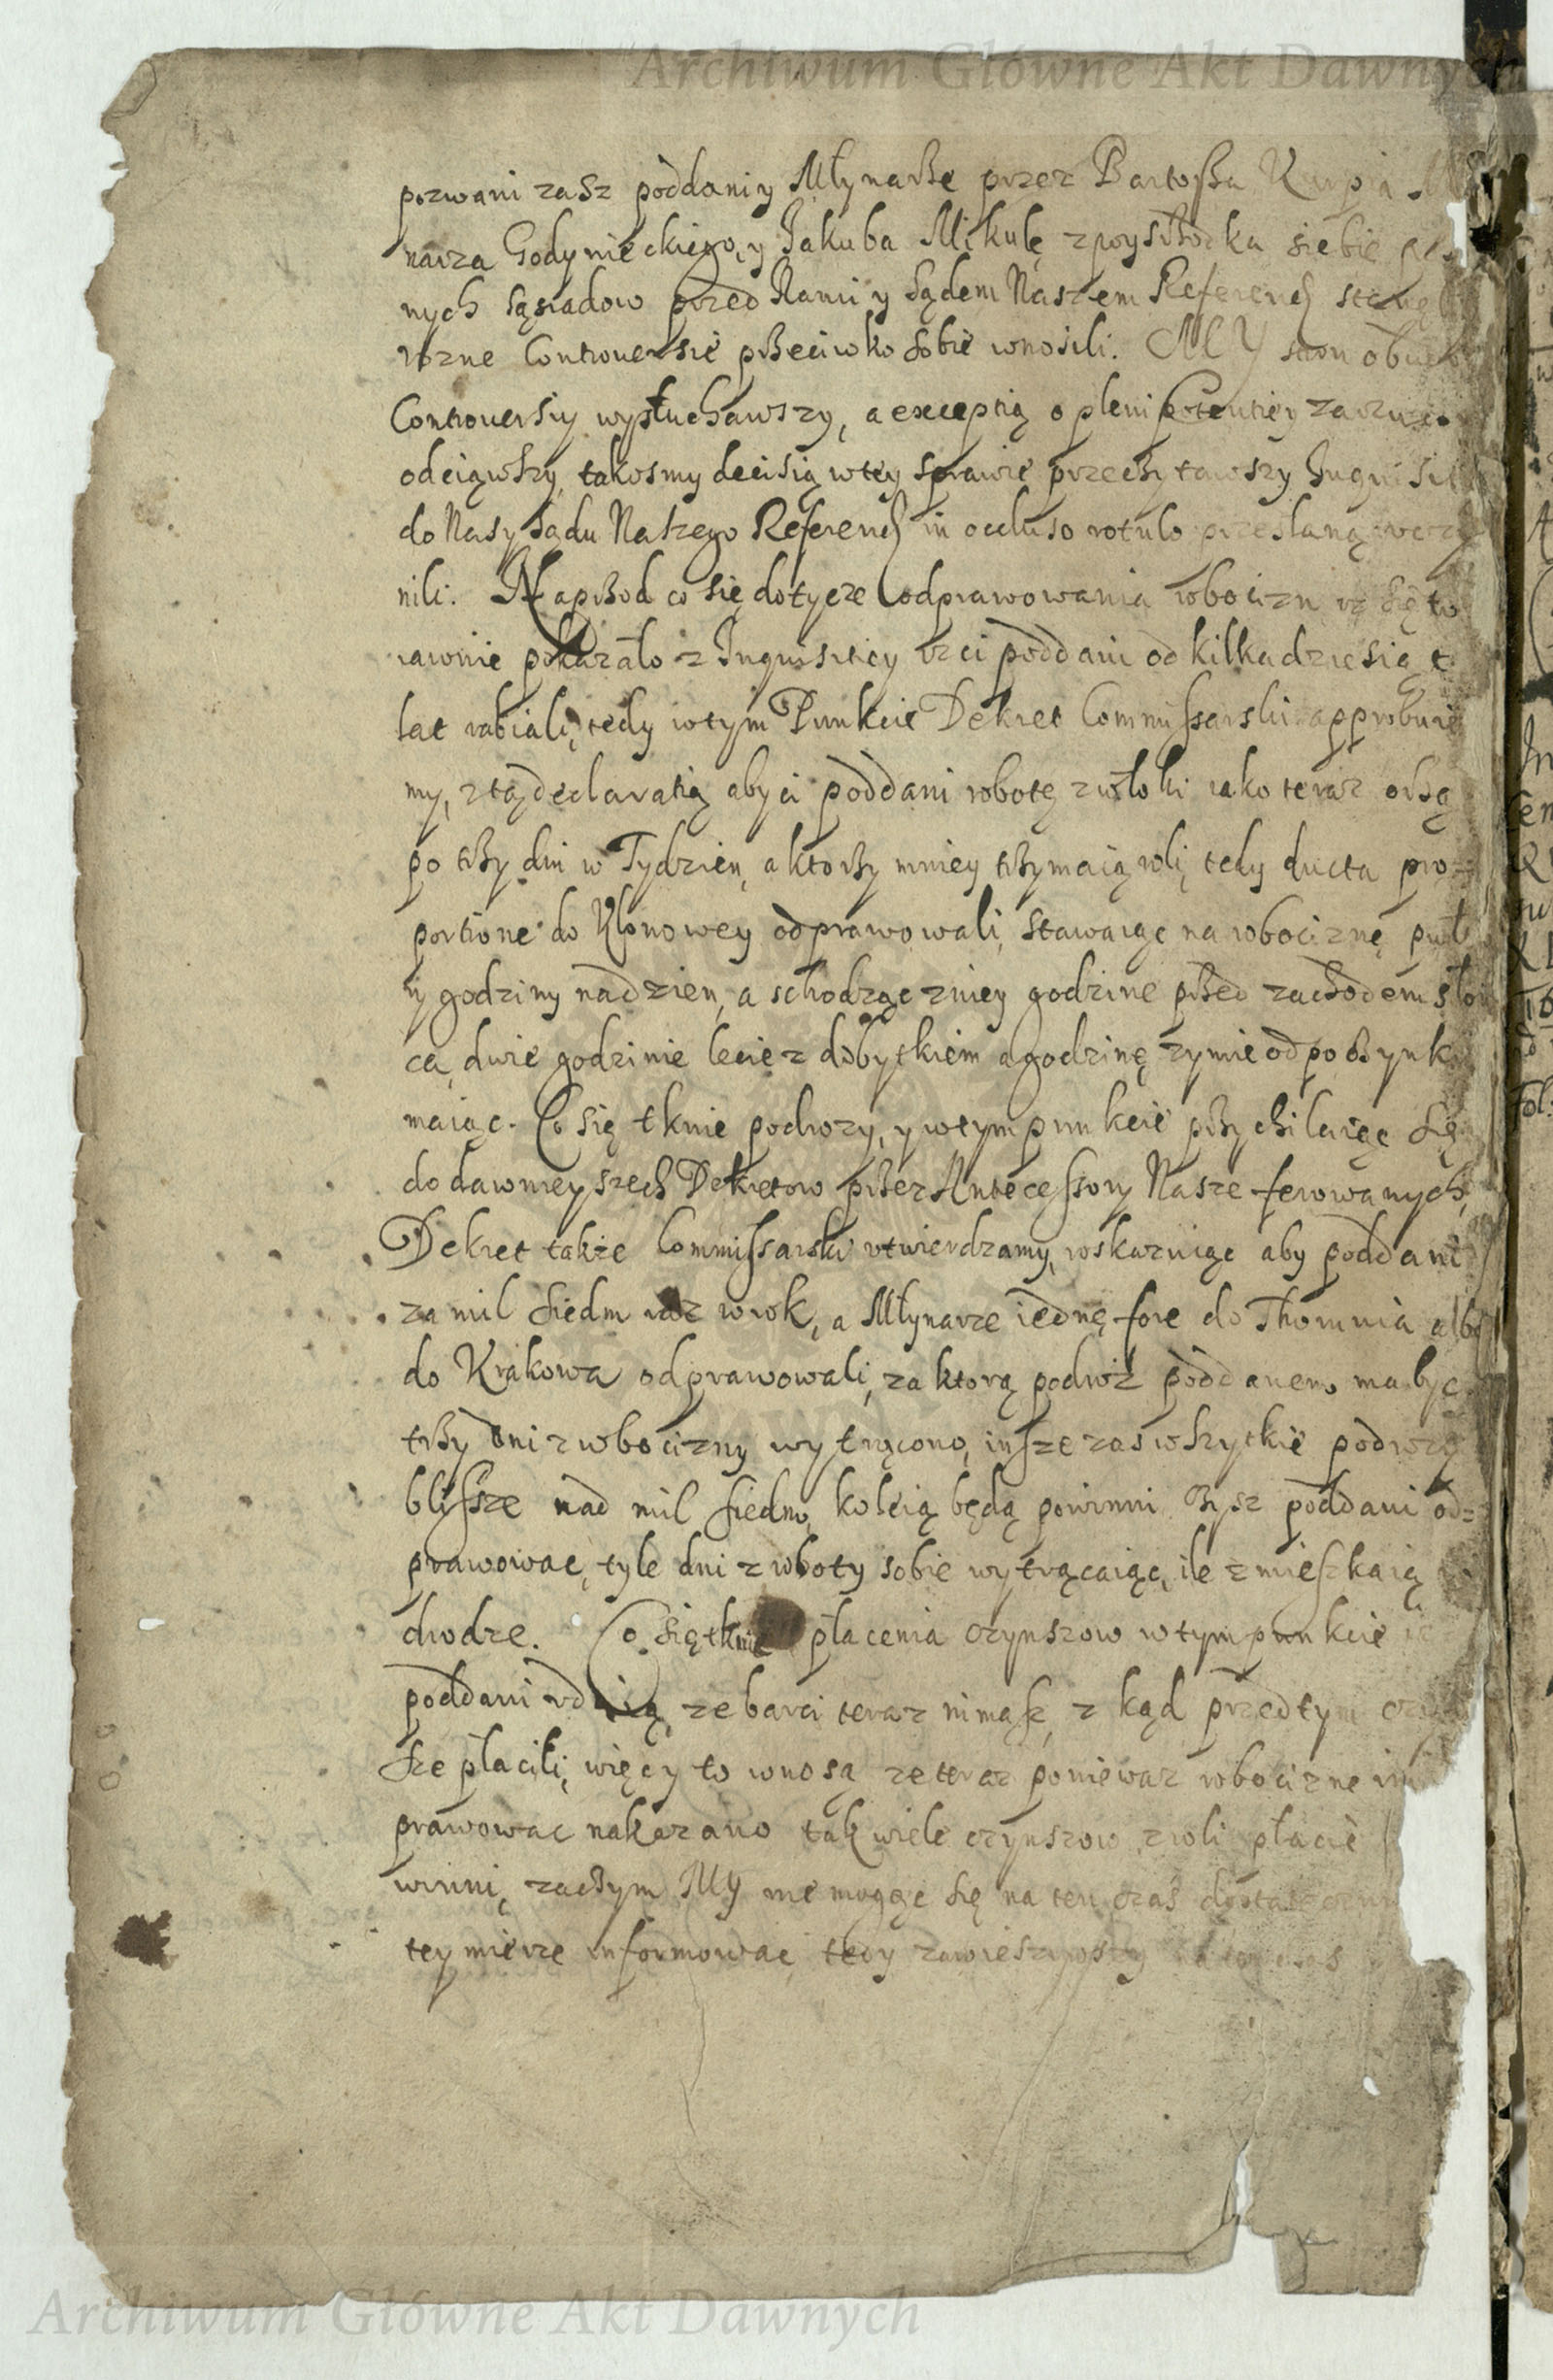 Archiwum Główne Akt Dawnych
pozwani zasz poddani y Młynarze przez Bartosza Kurpia
narza Godynieckiego, y Jakuba Mikułę siebie
nych sąsiadow przed Nami y Sądem Naszem Referend
rozne Controuersie przeciwko sobie wnosili. MY stron obu
Controuersiy wysłuchawszy, a exceptią o plenipotentiey
odciąwszy, takosmy decisią w tey sprawie przeczytawszy Inquisi
do Nas y Sądu Naszego Referend in occluso rotulo przesłaną
nili. Naprzod co się dotycze odprawowania robocizn, iż się to
iawnie pokazało z Inquisitiey iż ci poddani od kilkadziesiąt
lat rabiali, tedy w tym Punkcie Dekret Commissarski approbuie
my, z tą declaratią aby ci poddani robotę z włoki iako teraz orzą
po trzy dni w Tydzien, a ktorzy mniey trzymaią roli, tedy ducta pro-
portione do Klonowey odprawowali, stawaiąc na robociznę puł
y godziny nadzien, a schodząc z niey godzine przed zachodem słoń
ca, dwie godzinie lecie z dobytkiem a godzinę zymie odpoczynk
maiąc. Co się tknie podrozy, y w tym punkcie przychilaięc się
do dawnieyszech Dekretow przez Antecessory Nasze ferowanych,
Dekret także Commissarski utwierdzamy, wskazuiąc aby poddani
za mil siedm raz w rok, a Młynarze iednę fore do Thorunia albo
do Krakowa odprawowali, za ktorą podroż poddanem ma byc
trzy dni z robocizny wytrącono, insze zas wszytkie podrozy
blissze nad mil siedm, koleią będą powinni Cysz poddani od=
prawowac, tyle dni z roboty sobie wytrącaiąc, ile zmieszkaią
drodze. Co się tknie płacenia czynszow w tym punkcie iż
poddani udaią, ze barci teraz nimasz, z kąd przedtym
sze płacili, więc y to wnosą ze teraz poniewaz robocizne
prawowac nakazano tak wiele czynszow z roli płacic
winni, zaczym MY nie mogąc się na ten czas
tey mierze informowac, tedy zawieszywszy
Archiwum Główne Akt Dawnych